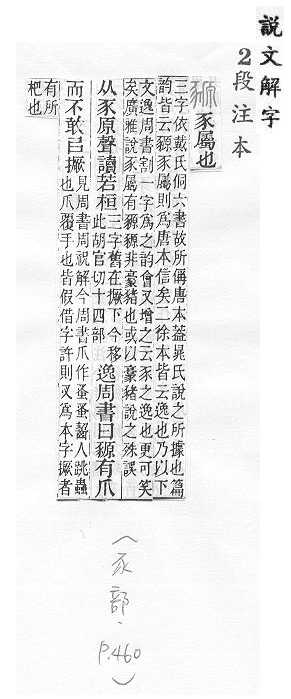 說文解字
2段注本
豲豕屬也
三字依戴氏侗六書故所稱唐本葢晁氏說之所據也篇
韵皆云豲豕屬則爲唐本信矣二徐本皆云逸也乃以下
文逸周書割一字爲之韵會又增之云豕之逸也更可笑
矣廣雅說豕屬有豲豲非豪豬也或以豪豬說之殊誤
从豕原聲讀若桓三字舊在撅下今移此胡官切十四部逸周書曰豲有爪
而不敢㠯撅見周書周祝解今周書爪作蚤蚤齧人跳蟲也爪覆手也皆假借字許則又爲本字撅者
有所
杷也
(豕部、P.460)